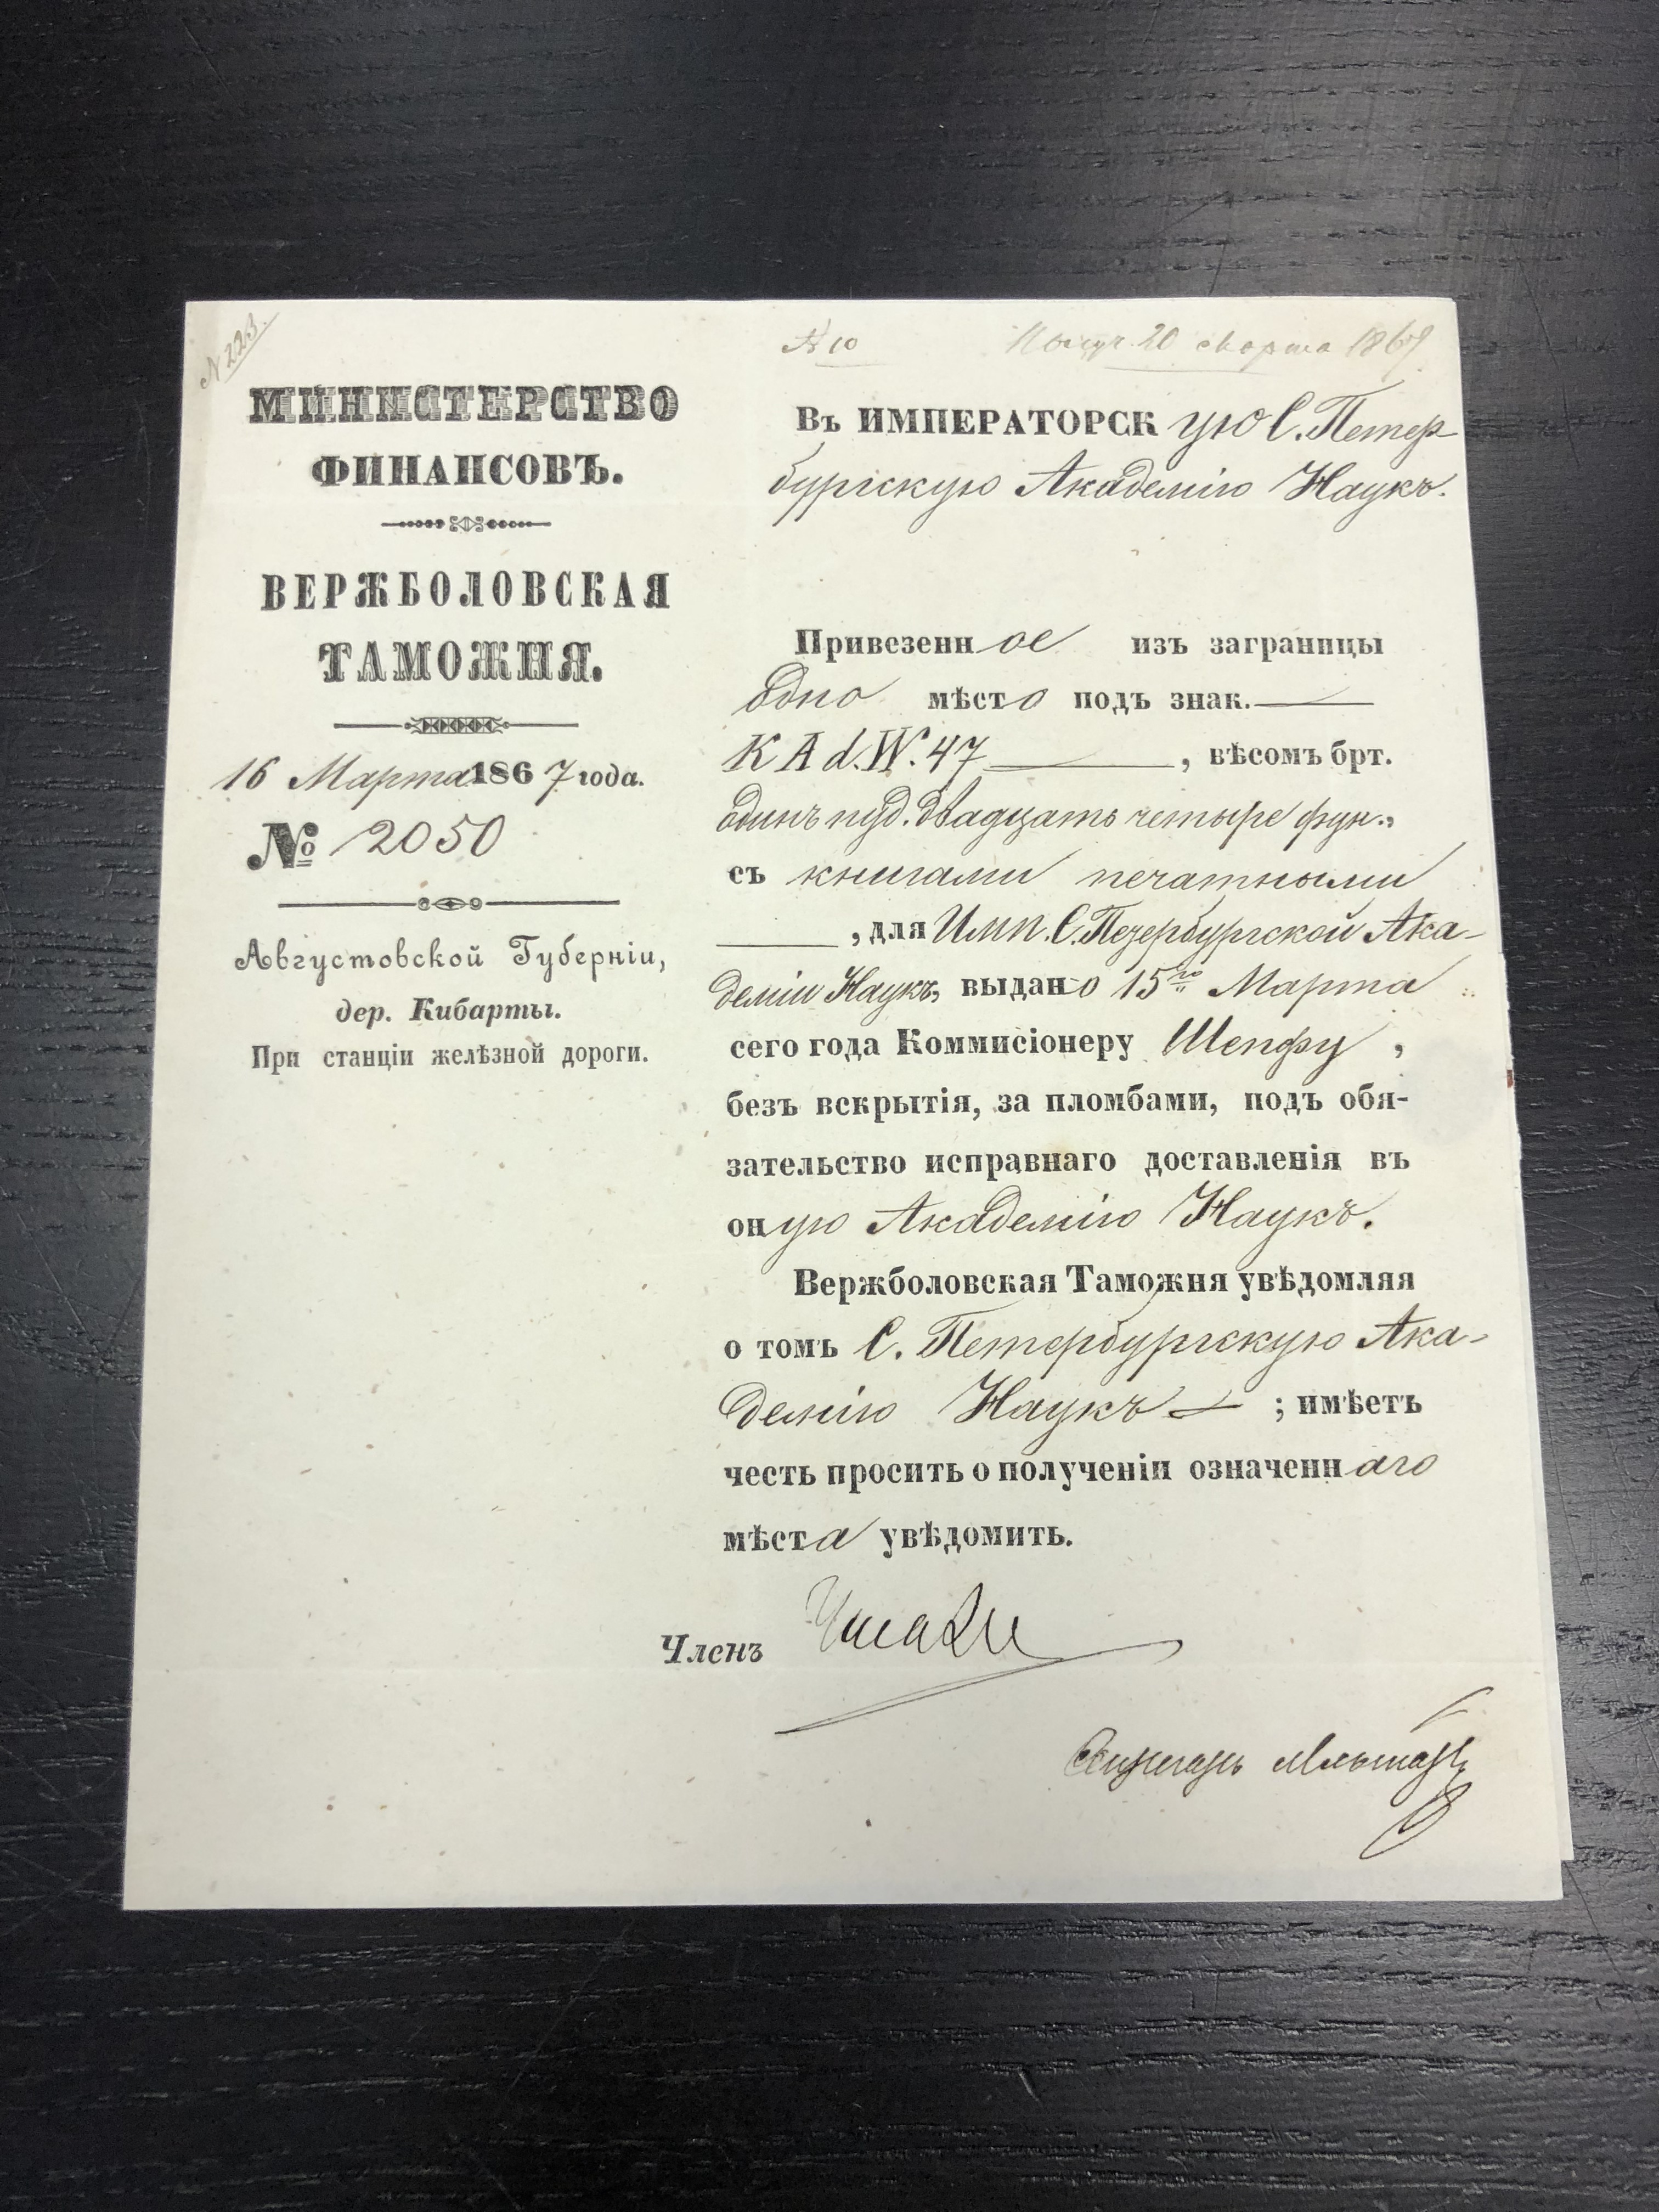 N 223.
МИНИСТЕРСТВО
ФИНАНСОВЪ.
ВЕРЖБОЛОВСКАЯ
ТАМОЖНЯ.
16 Марта 1867 года.
№ 2050
Августовской Губерніи,
дер. Кибарты.
При станціи желѣзной дороги.
N 10
20 Марта 1867
Въ ИМПЕРАТОРСКую С. Петер
бургскую Академію Наукъ.
Привезенное изъ заграницы
одно мѣсто подъ знак.
K A d. W. 47, вѣсомъ брт.
одинъ пуд. двадцать четыре фун.,
съ книгами печатными
, для Имп. С. Петербургской Ака-
деміи Наукъ, выдано 15го Марта
сего года Коммисіонеру Шепфу,
безъ вскрытія, за пломбами, подъ обя-
зательство исправнаго доставленія въ
оную Академію Наукъ.
Вержболовская Таможня увѣдомляя
о томъ С. Петербургскую Ака-
демію Наукъ; имѣетъ
честь просить о полученіи означеннаго
мѣста увѣдомить.
Членъ